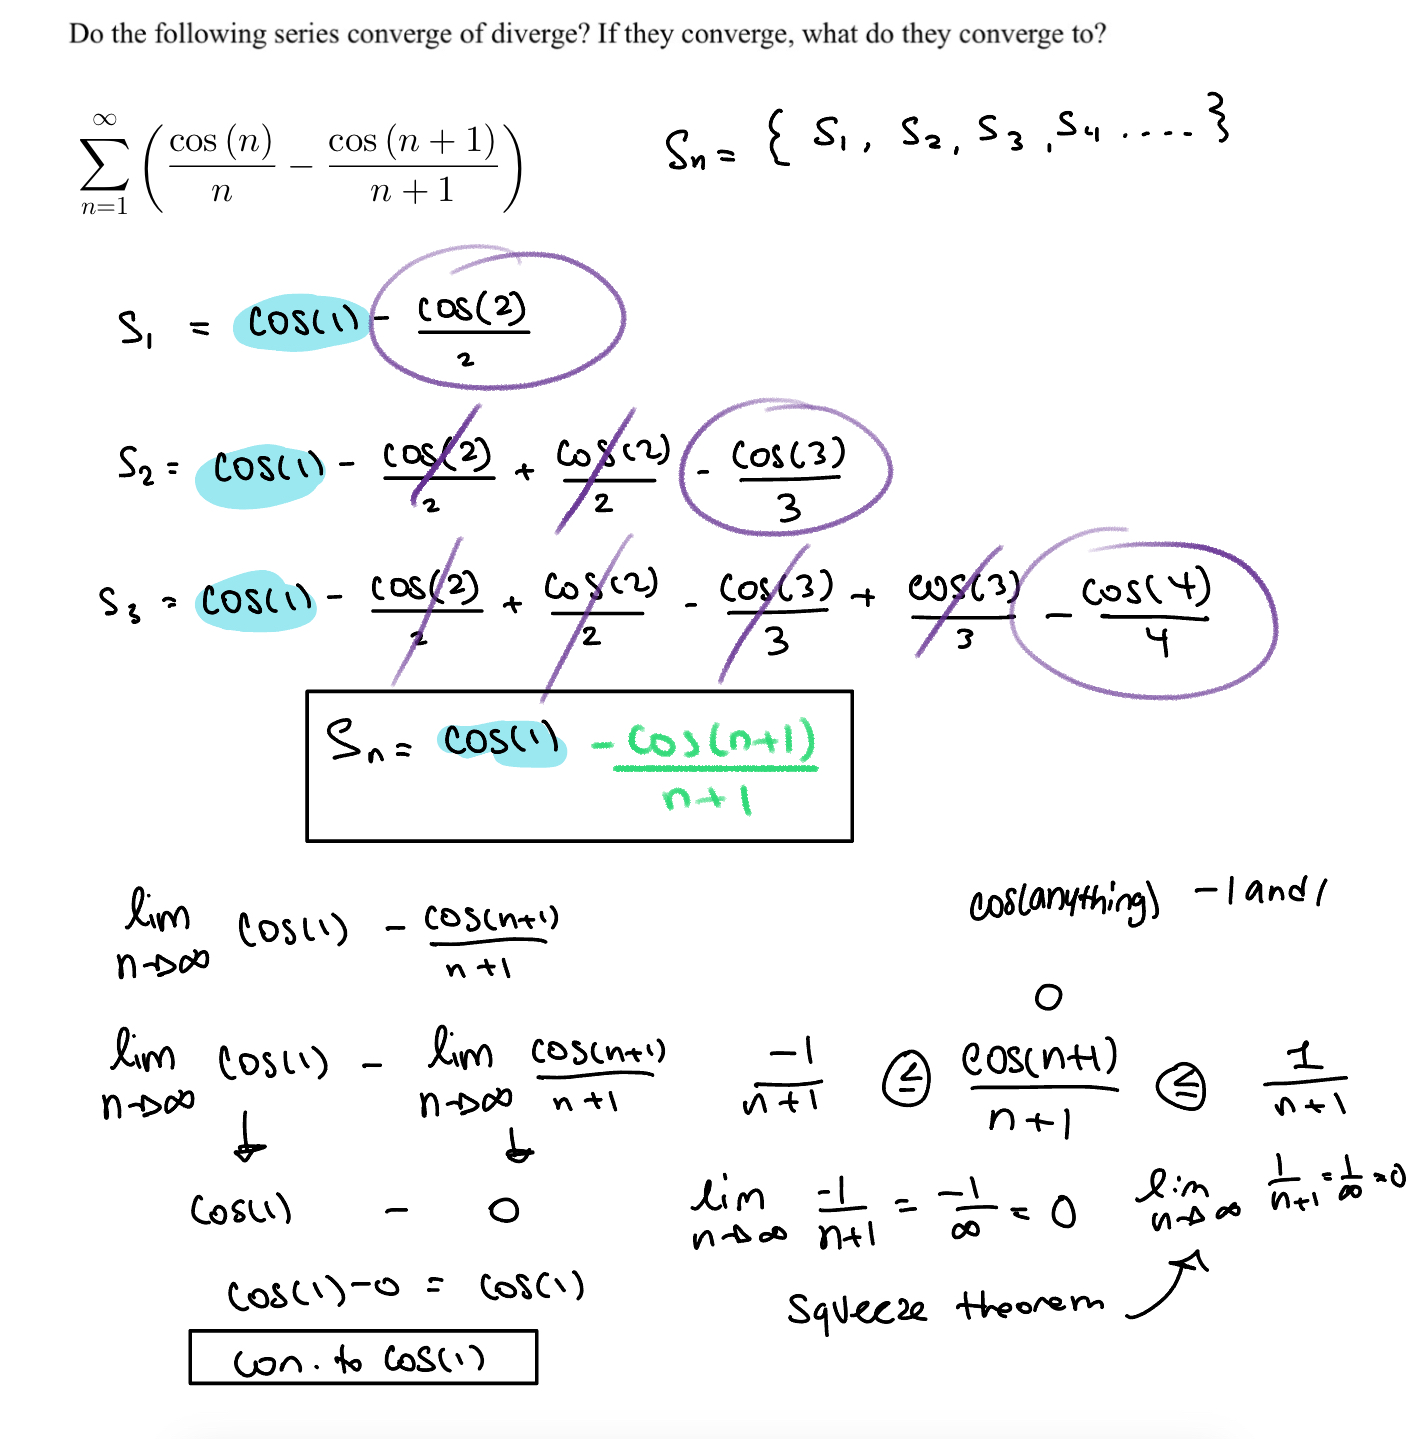 Do the following series converge of diverge? If they converge, what do they converge to?
∑_{n=1}^{∞} ( cos (n)/n − cos (n + 1)/(n + 1) )
Sn = { S1, S2, S3, S4 .... }
S1 = cos(1) - cos(2)/2
S2 = cos(1) - cos(2)/2 + cos(2)/2 - cos(3)/3
S3 = cos(1) - cos(2)/2 + cos(2)/2 - cos(3)/3 + cos(3)/3 - cos(4)/4
Sn = cos(1) - cos(n+1)/n+1
lim n→∞ cos(1) - cos(n+1)/n+1
cos(anything) -1 and 1
0
lim n→∞ cos(1) - lim n→∞ cos(n+1)/n+1
-1/n+1 ≤ cos(n+1)/n+1 ≤ 1/n+1
cos(1) - 0
lim n→∞ -1/n+1 = -1/∞ = 0
lim n→∞ 1/n+1 = 1/∞ = 0
cos(1)-0 = cos(1)
Squeeze theorem
con. to cos(1)